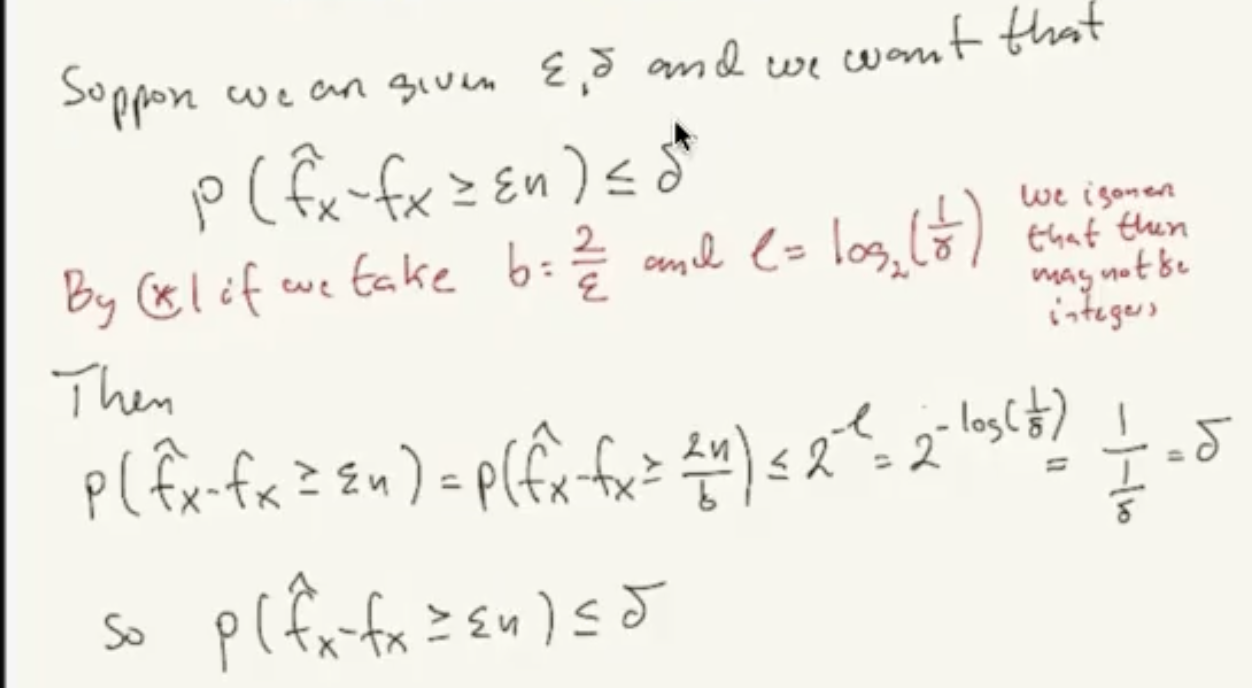 Suppon we an given ε, δ and we want that
P(f̂ₓ-fₓ ≥ εn) ≤ δ
By (*) if we take b = 2/ε and l = log₂(1/δ)
we ignore
that then
may not be
integers
Then
P(f̂ₓ-fₓ ≥ εn) = P(f̂ₓ-fₓ ≥ 2n/b) ≤ 2^-l = 2^-log(1/δ) = 1/(1/δ) = δ
So P(f̂ₓ-fₓ ≥ εn) ≤ δ